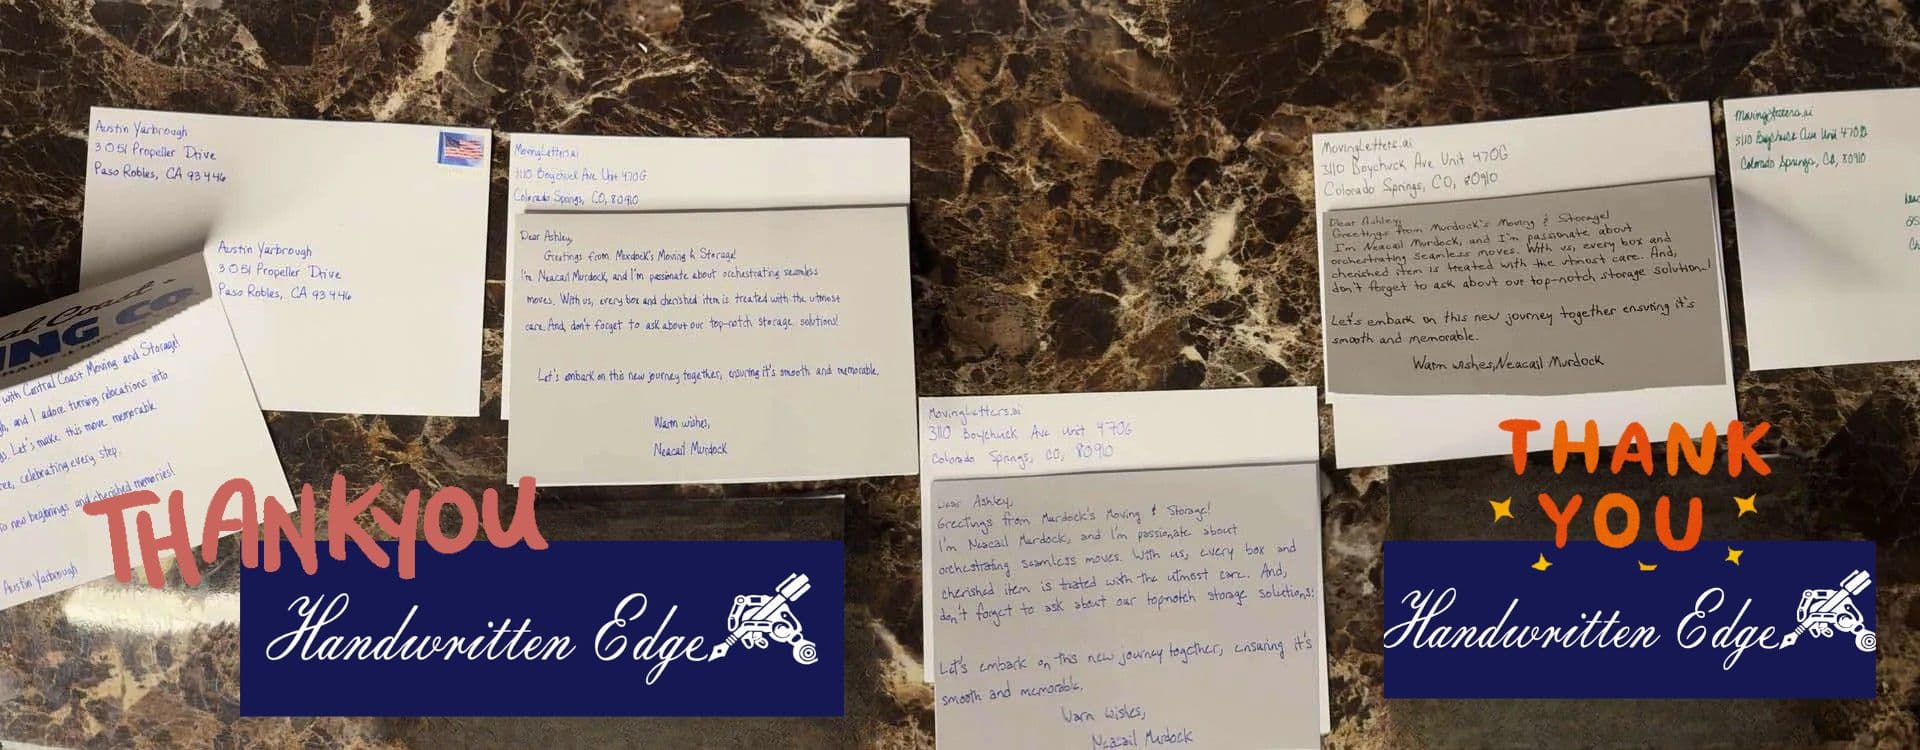 Austin Yarbrough
3051 Propeller Drive
Paso Robles, CA 93446
Austin Yarbrough
3051 Propeller Drive
Paso Robles, CA 93446
ING CO.
with Central Coast Moving and Storage!
and I adore turning relocations into
Let's make this move memorable
celebrating every step.
new beginnings and cherished memories!
Austin Yarbrough
MovingLetters.ai
3110 Boychuck Ave Unit 470G
Colorado Springs, CO, 80910
Dear Ashley,
Greetings from Murdock's Moving & Storage!
I'm Neacail Murdock, and I'm passionate about orchestrating seamless
moves. With us, every box and cherished item is treated with the utmost
care. And, don't forget to ask about our top-notch storage solutions!
Let's embark on this new journey together, ensuring it's smooth and memorable.
Warm wishes,
Neacail Murdock
MovingLetters.ai
3110 Boychuck Ave Unit 470G
Colorado Springs, CO, 80910
Dear Ashley,
Greetings from Murdock's Moving & Storage!
I'm Neacail Murdock, and I'm passionate about
orchestrating seamless moves. With us, every box and
cherished item is treated with the utmost care. And,
don't forget to ask about our topnotch storage solutions!
Let's embark on this new journey together, ensuring it's
smooth and memorable.
Warm wishes,
Neacail Murdock
MovingLetters.ai
3110 Boychuck Ave Unit 470G
Colorado Springs, CO, 80910
Dear Ashley,
Greetings from Murdock's Moving & Storage!
I'm Neacail Murdock, and I'm passionate about
orchestrating seamless moves. With us, every box and
cherished item is treated with the utmost care. And,
don't forget to ask about our top-notch storage solution!
Let's embark on this new journey together ensuring it's
smooth and memorable.
Warm wishes, Neacail Murdock
MovingLetters.ai
3110 Boychuck Ave Unit 470G
Colorado Springs, CO, 80910
THANK YOU
Handwritten Edge
THANK
YOU
Handwritten Edge